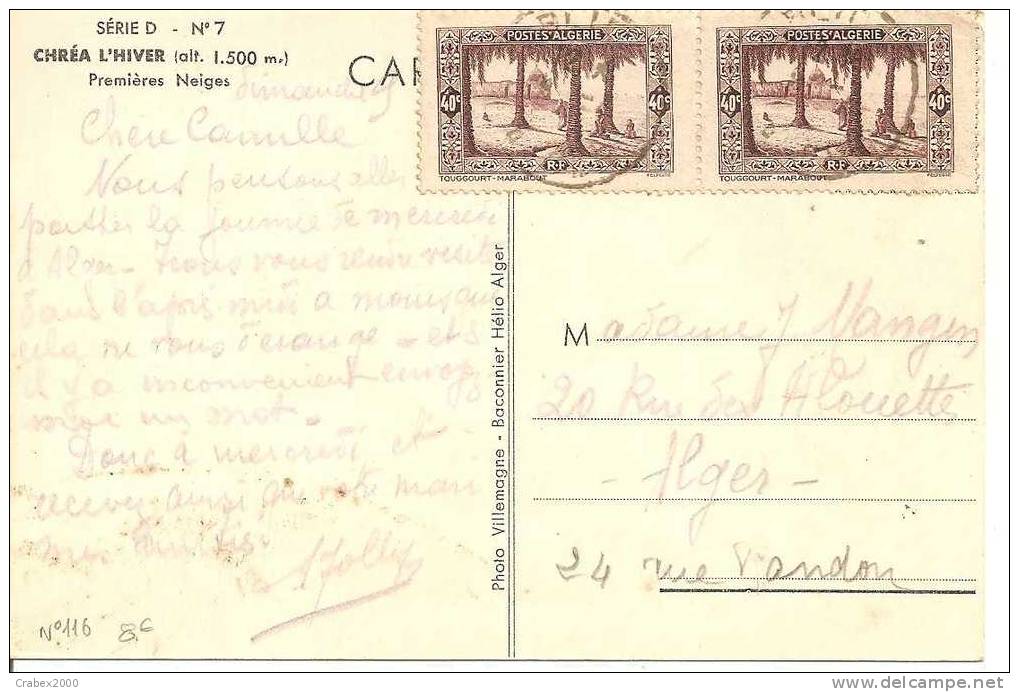 SÉRIE D - Nº 7
CHRÉA L'HIVER (alt. 1.500 m.)
Premières Neiges
CAR
POSTES ALGERIE
40c 40c
RF
TOUGGOURT-MARABOUT
POSTES ALGERIE
40c 40c
RF
TOUGGOURT-MARABOUT
Dimanche
Chère Camille
Nous pensons aller
passer la journée de mercredi
à Alger - Irons vous rendre visite
dans l'après midi a moins que
cela ne vous dérange - et s
il y a inconvenient envoyez
moi un mot.
Donc à mercredi et
recevez ainsi que votre mari
mes amitiés
Nº 116 8€
Photo Villemagne - Baconnier Hélio Alger
Madame J Mangin
20 Rue des Alouette
- Alger -
24 rue Vandon
Crabex2000
delcampe.net